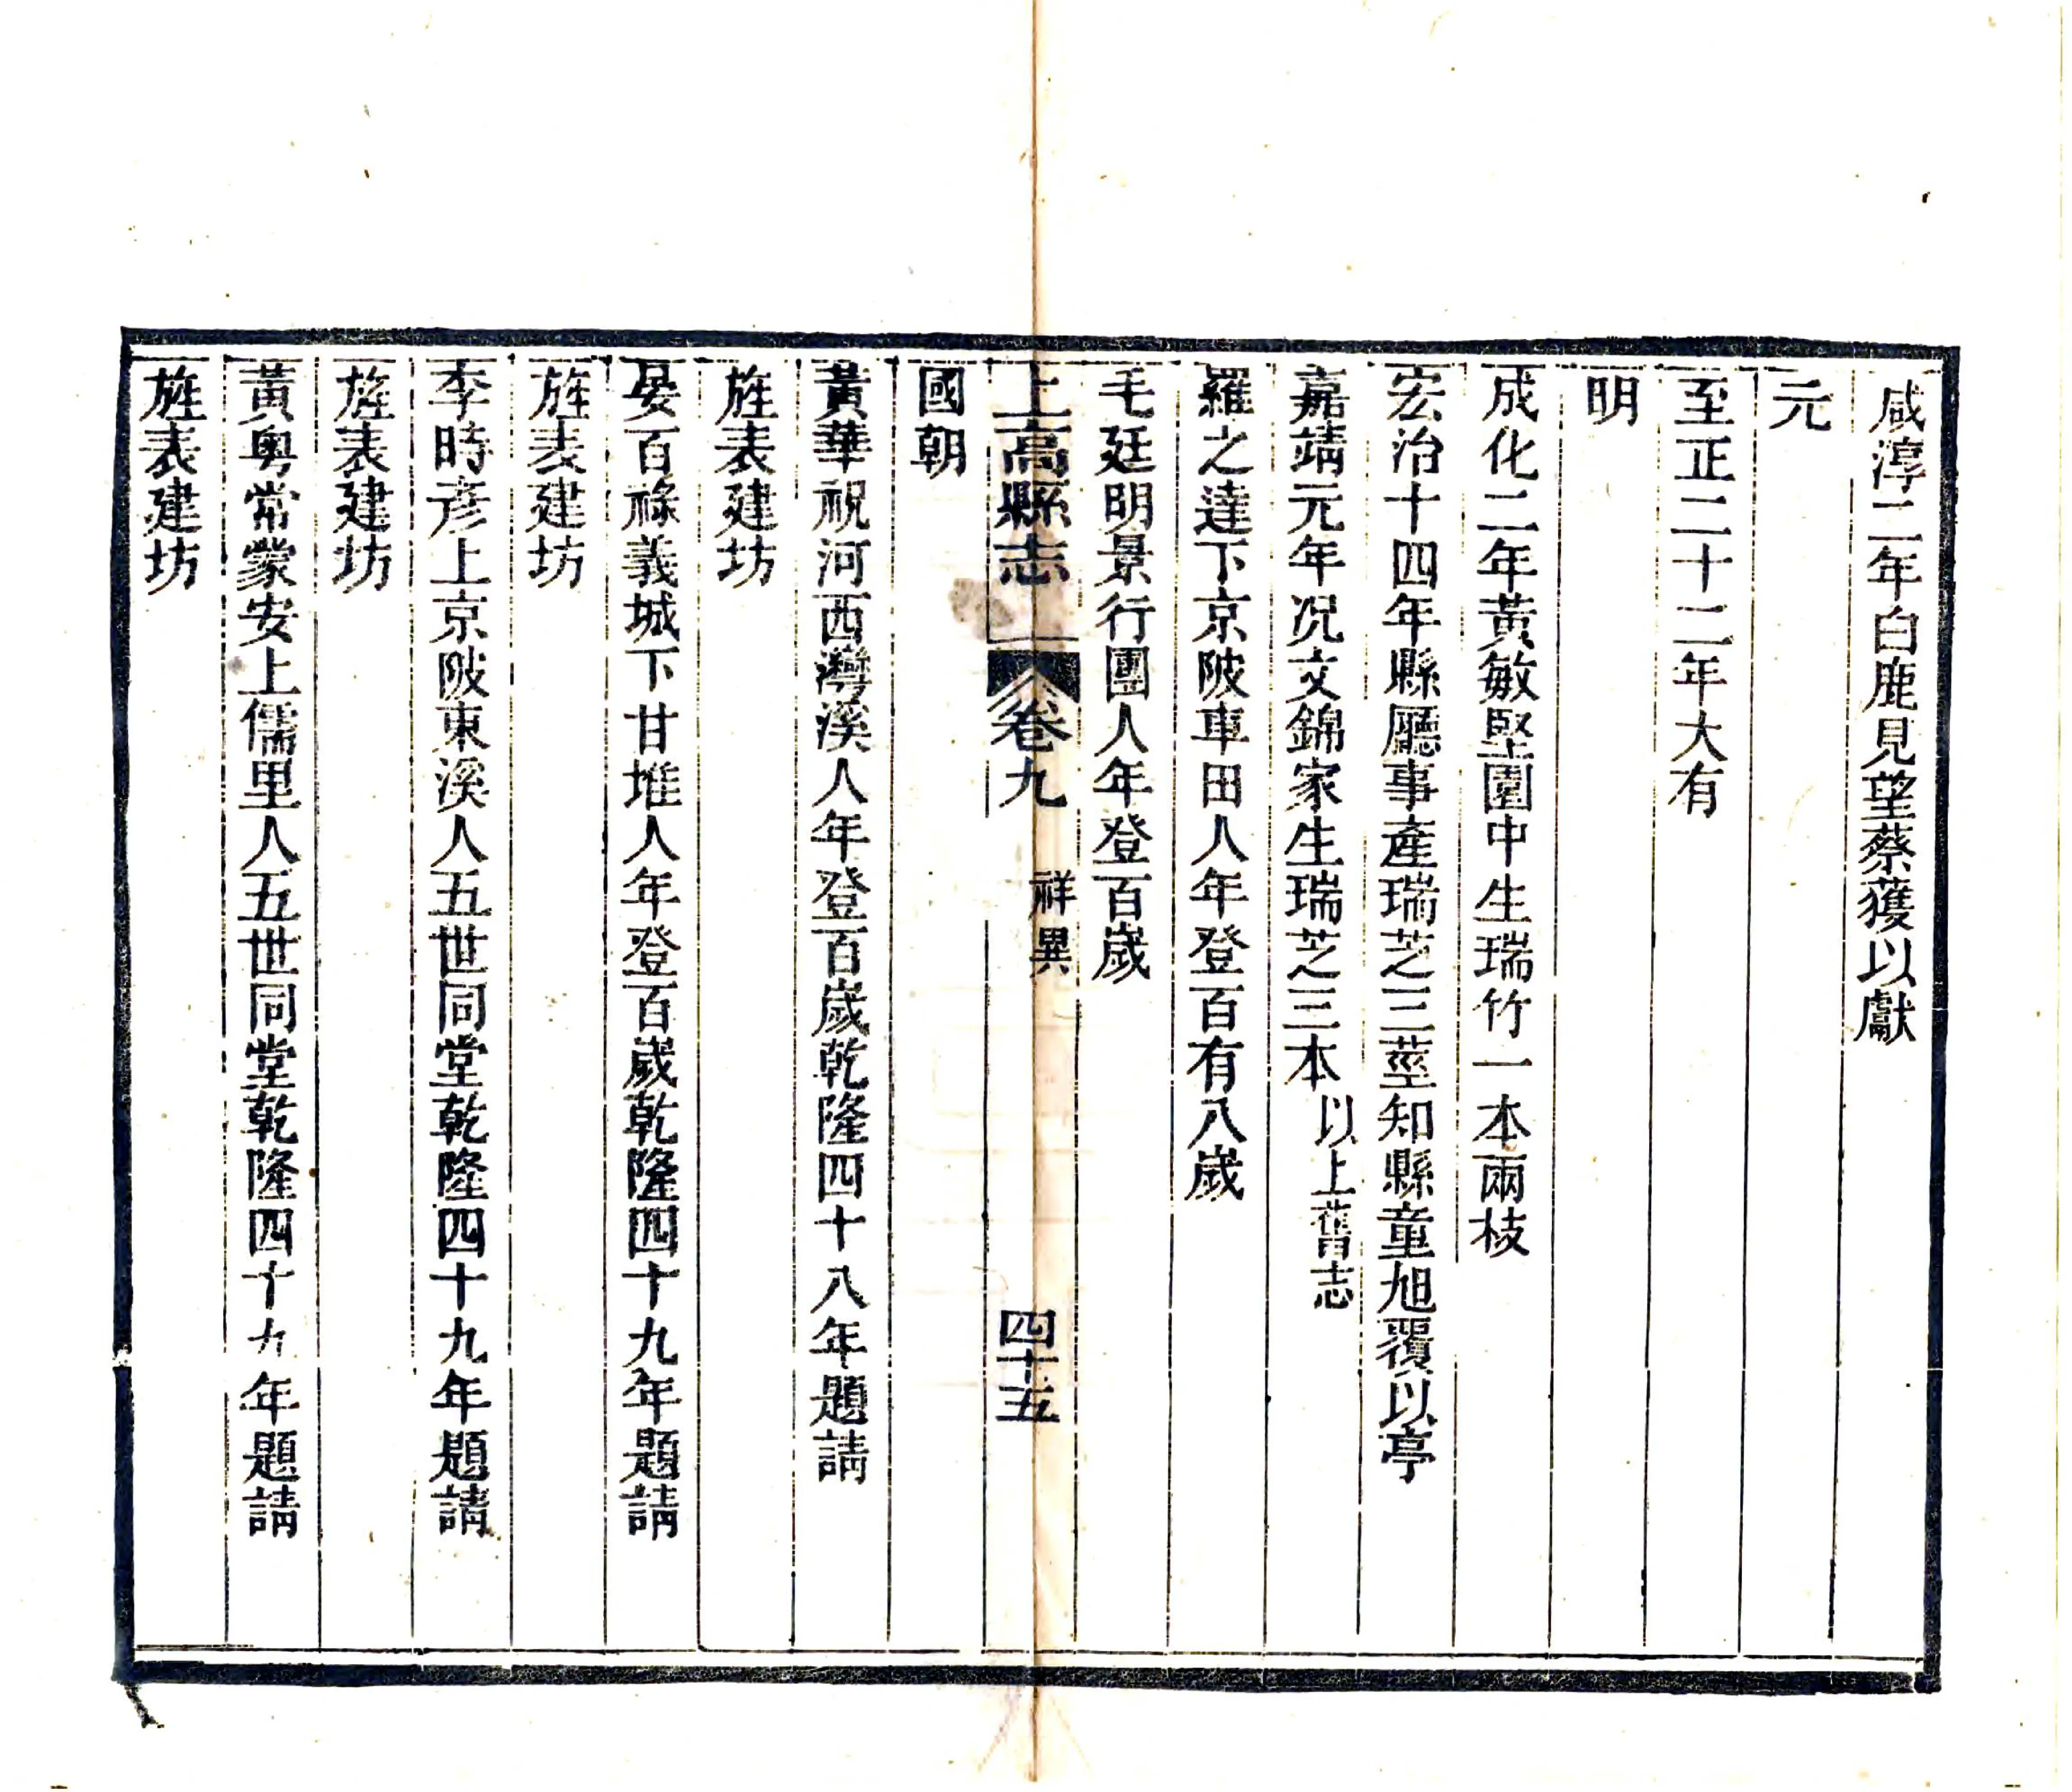 咸淳二年白鹿見望蔡獲以獻
元
至正二十二年大有
明
成化二年黃敏堅園中生瑞竹一本兩枝
宏治十四年縣廳事產瑞芝三莖知縣童旭覆以亭
嘉靖元年況文錦家生瑞芝三本以上舊志
羅之達下京陂車田人年登百有八歲
毛廷明景行團人年登百歲
上高縣志 卷九 祥異 四十五
國朝
黃華祝河西灣溪人年登百歲乾隆四十八年題請
旌表建坊
晏百祿義城下甘堆人年登百歲乾隆四十九年題請
旌表建坊
李時彥上京陂東溪人五世同堂乾隆四十九年題請
旌表建坊
黃粵常蒙安上儒里人五世同堂乾隆四十九年題請
旌表建坊